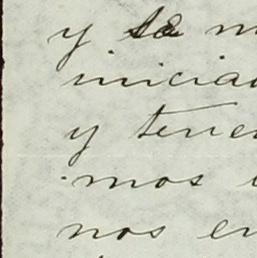 y se m
inicia
y tene
mos
nos en